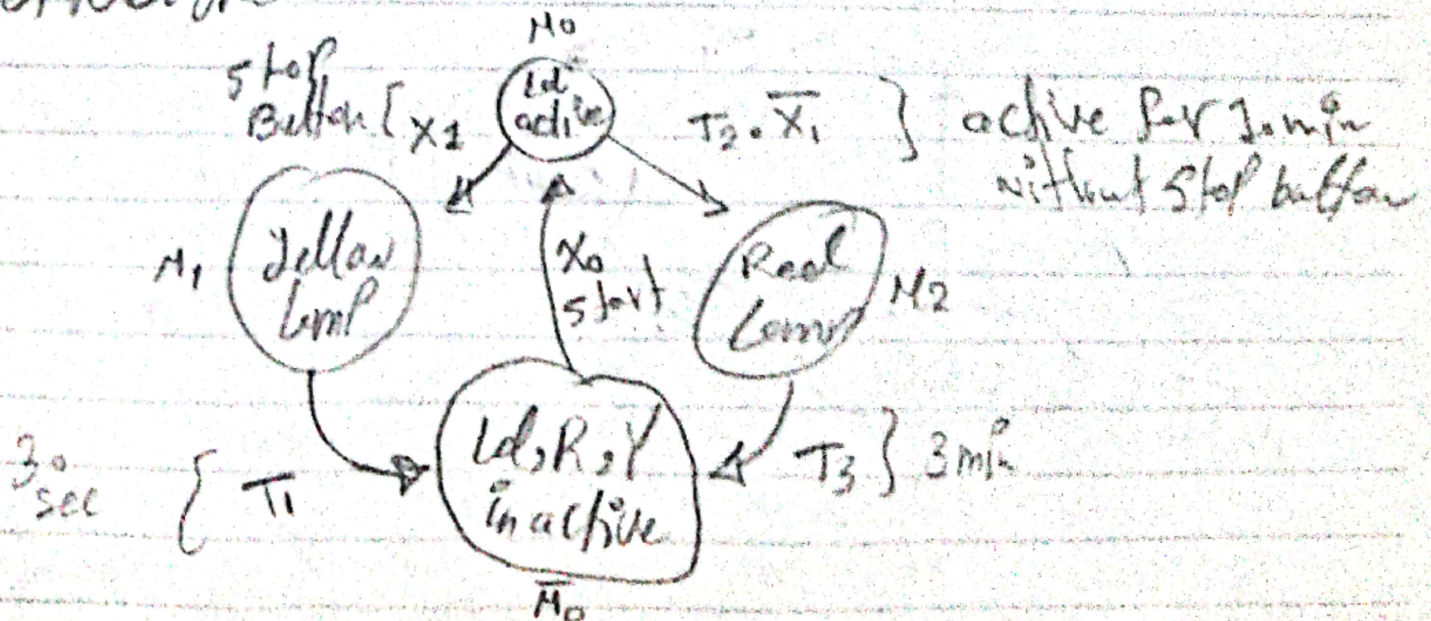 M0
Stop
Button [ X1
Ld
active
T2 . X̅1 } active for 10 min
without stop button
M1
Yellow
Lamp
X0
start
Read
Lamp
M2
30
sec { T1
Ld, R, Y
inactive
T3 } 3 min
M̅0